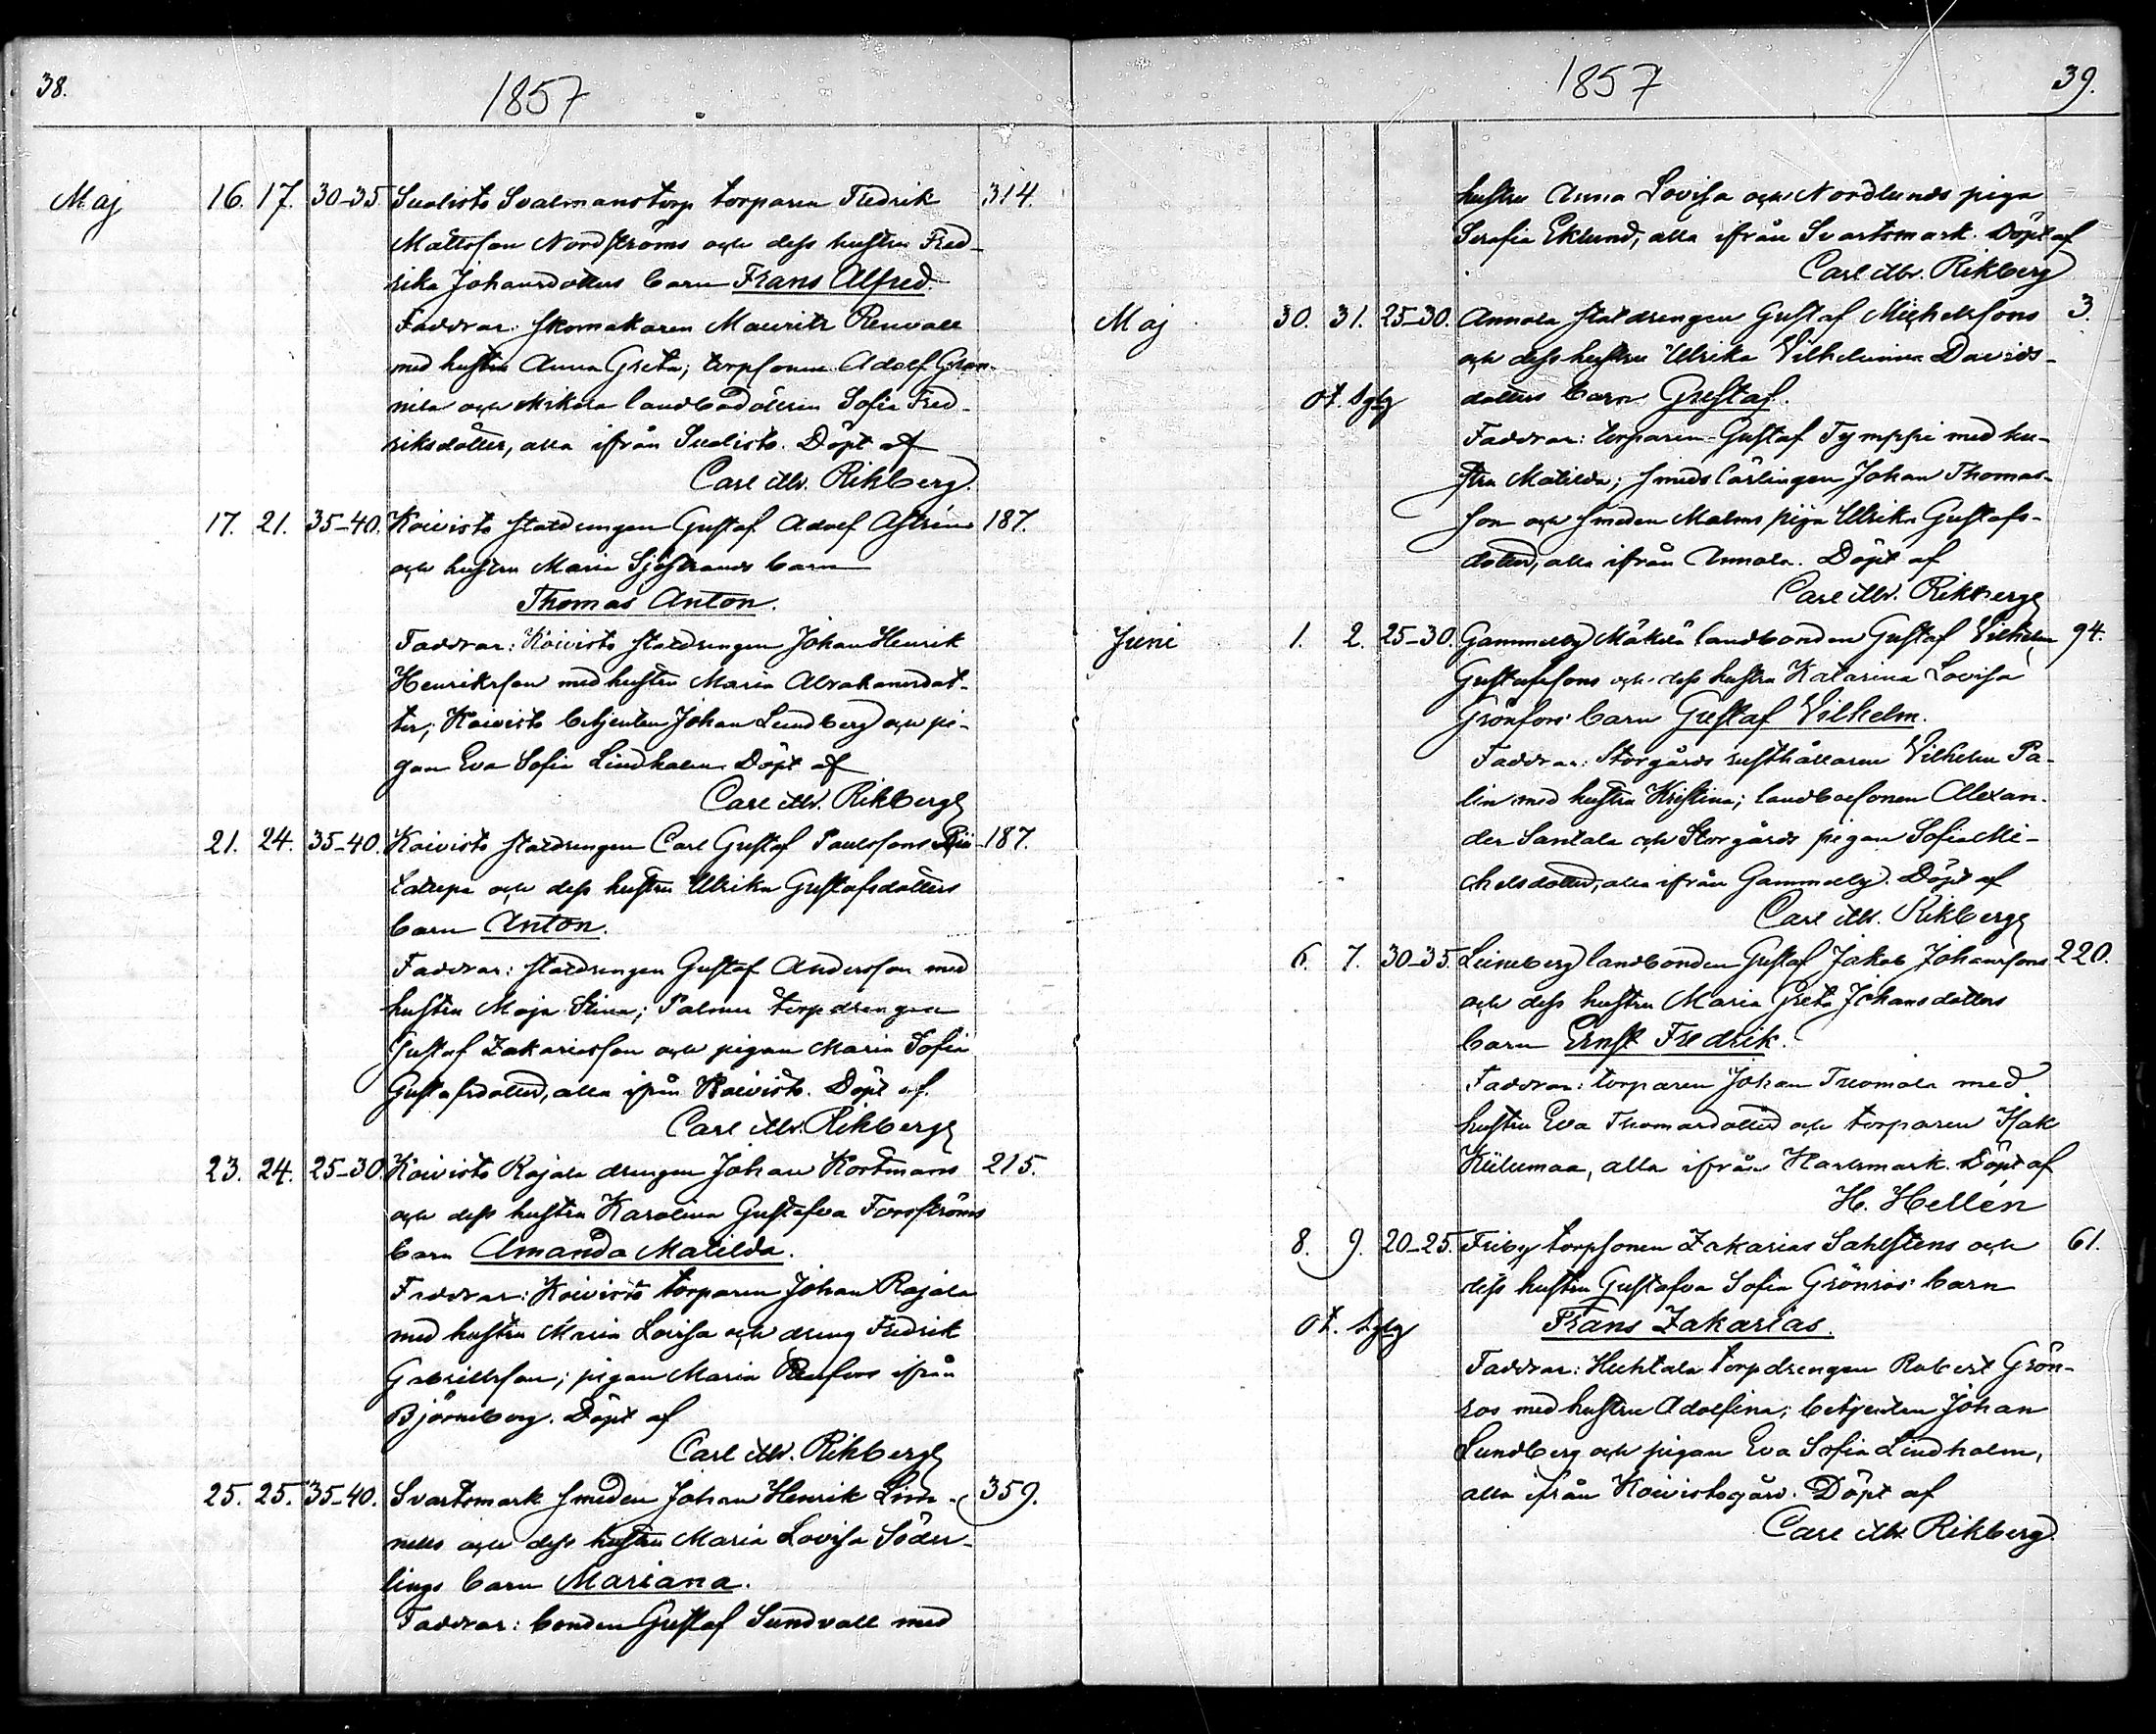 38.
1857
Maj 16. 17. 30-35. Sualisto Svalmanstorp torparen Fredrik 314.
Mattsson Nordströms och dess hustru Fred-
rika Johansdotters barn Frans Alfred.
Faddrar: skomakaren Mauritz Renvall
med hustru Anna Greta; torpsonen Adolf Gran-
nila och Mikola landbodottren Sofia Fred-
riksdotter, alla ifrån Sualisto. Döpt af
Carl Mr. Rikberg.
17. 21. 35-40. Koivisto statdrengen Gustaf Adolf Aströms 187.
och hustru Maria Sjöstrands barn
Thomas Anton.
Faddrar: Koivisto statdrengen Johan Henrik
Henriksson med hustru Maria Abrahamsdot-
ter; Koivisto betjenten Johan Lundberg och pi-
gan Eva Sofia Lindholm. Döpt af
Carl Mr. Rikberg
21. 24. 35-40. Koivisto statdrengen Carl Gustaf Paulssons 187.
och dess hustru Ulrika Gustafsdotters
barn Anton.
Faddrar: statdrengen Gustaf Andersson med
hustru Maja Stina; Palmu torpdrengen
Gustaf Zakariasson och pigan Maria Sofia
Gustafsdotter, alla ifrån Koivisto. Döpt af
Carl Mr. Rikberg
23. 24. 25-30. Koivisto Rajala drengen Johan Kortmans 215.
och dess hustru Karolina Gustafva Forsströms
barn Amanda Matilda.
Faddrar: Koivisto torparen Johan Rajala
med hustru Maria Lovisa och dreng Fredrik
Gabrielsson; pigan Maria Renfors ifrån
Björneborg. Döpt af
Carl Mr. Rikberg
25. 25. 35-40. Svartsmark smeden Johan Henrik Lin- 359.
nells och dess hustru Maria Lovisa Söder-
lings barn Mariana.
Faddrar: bonden Gustaf Sundvall med
1857
39.
hustru Anna Lovisa och Nordlunds piga
Serafia Eklund, alla ifrån Svartsmark. Döpt af
Carl Mr. Rikberg
Maj 30. 31. 25-30. Annola statdrengen Gustaf Michelssons 3.
och dess hustru Ulrika Vilhelmina Davids-
dotters barn Gustaf.
Faddrar: torparen Gustaf Tymppi med hu-
stru Matilda; smeds lärlingen Johan Thomas-
son och smeden Malms piga Ulrika Gustafs-
dotter, alla ifrån Annola. Döpt af
Carl Mr. Rikberg
Juni 1. 2. 25-30. Gammelby Mäkilä landbonden Gustaf Vilhelm 94.
Gustafssons och dess hustru Katarina Lovisa
Grönfors' barn Gustaf Vilhelm.
Faddrar: Storgårds rusthållaren Vilhelm Pa-
lin med hustru Kristina; landbosonen Alexan-
der Santala och Storgårds pigan Sofia Mi-
chelsdotter, alla ifrån Gammelby. Döpt af
Carl Mr. Rikberg
6. 7. 30-35. Leineberg landbonden Gustaf Jakob Johanssons 220.
och dess hustru Maria Greta Johansdotters
barn Ernst Fredrik.
Faddrar: torparen Johan Tuomola med
hustru Eva Thomasdotter och torparen Isak
Kiilimaa, alla ifrån Harlsmark. Döpt af
H. Hellén
8. 9. 20-25. Friby torpsonen Zakarias Sahlstens och 61.
dess hustru Gustafva Sofia Grönroos' barn
Frans Zakarias.
Faddrar: Huhtala torpdrengen Robert Grön-
ros med hustru Adolfina; betjenten Johan
Lundberg och pigan Eva Sofia Lindholm,
alla ifrån Koivistogård. Döpt af
Carl Mr. Rikberg.